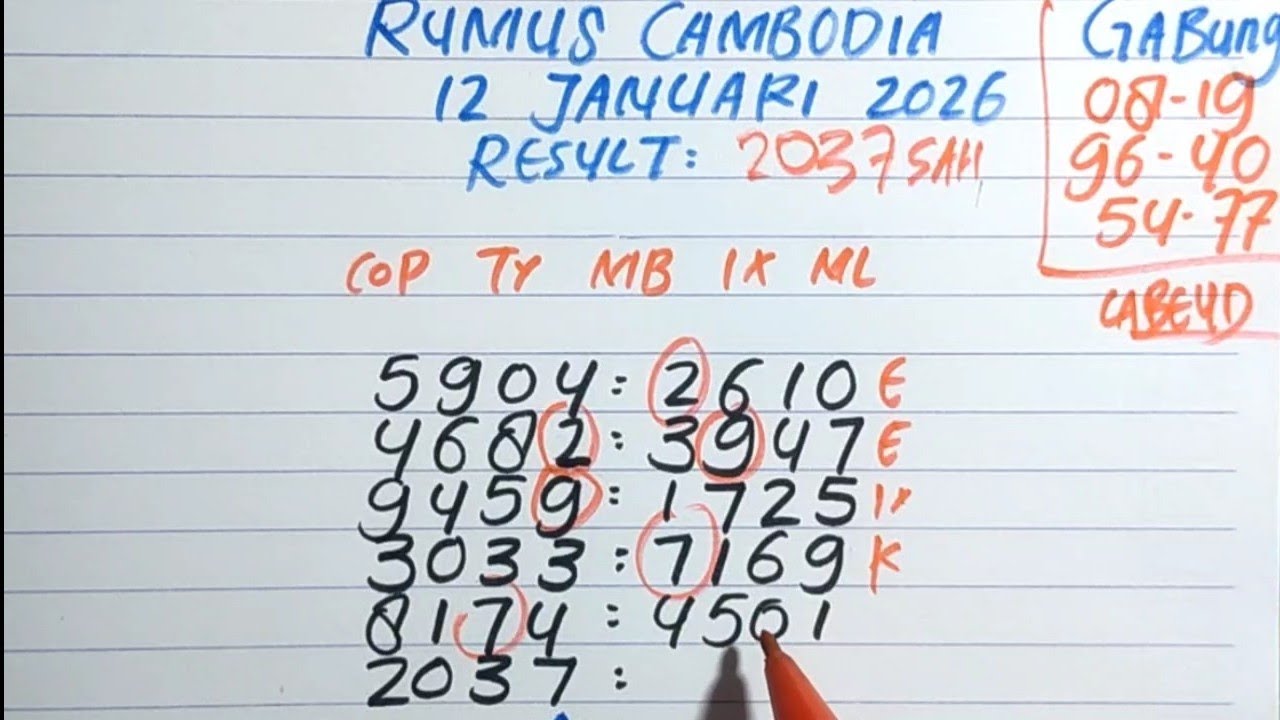 RUMUS CAMBODIA
12 JANUARI 2026
RESULT: 2037 SAH
GABung
08-19
96-40
54-77
CABEUD
COP TY MB IX ML
5904: 2610 E
4682: 3947 E
9459: 1725 IX
3033: 7169 K
8174: 4501
2037: